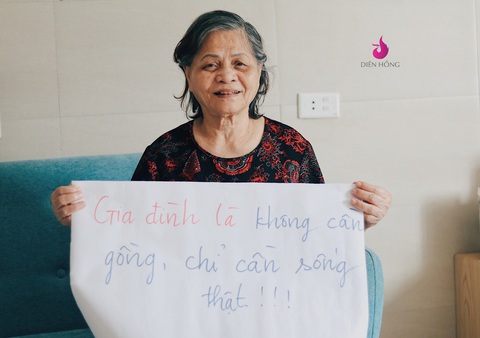 DIÊN HỒNG
Gia đình là không cần
gồng, chỉ cần sống
thật!!!